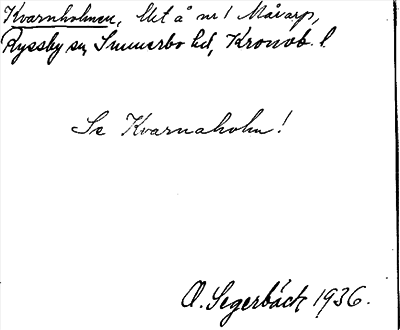 Kvarnholmen, lht å nr 1 Måvarp,
Ryssby sn, Sunnerbo hd, Kronob. l.
Se Kvarnaholm!
O. Segerbäck 1936.